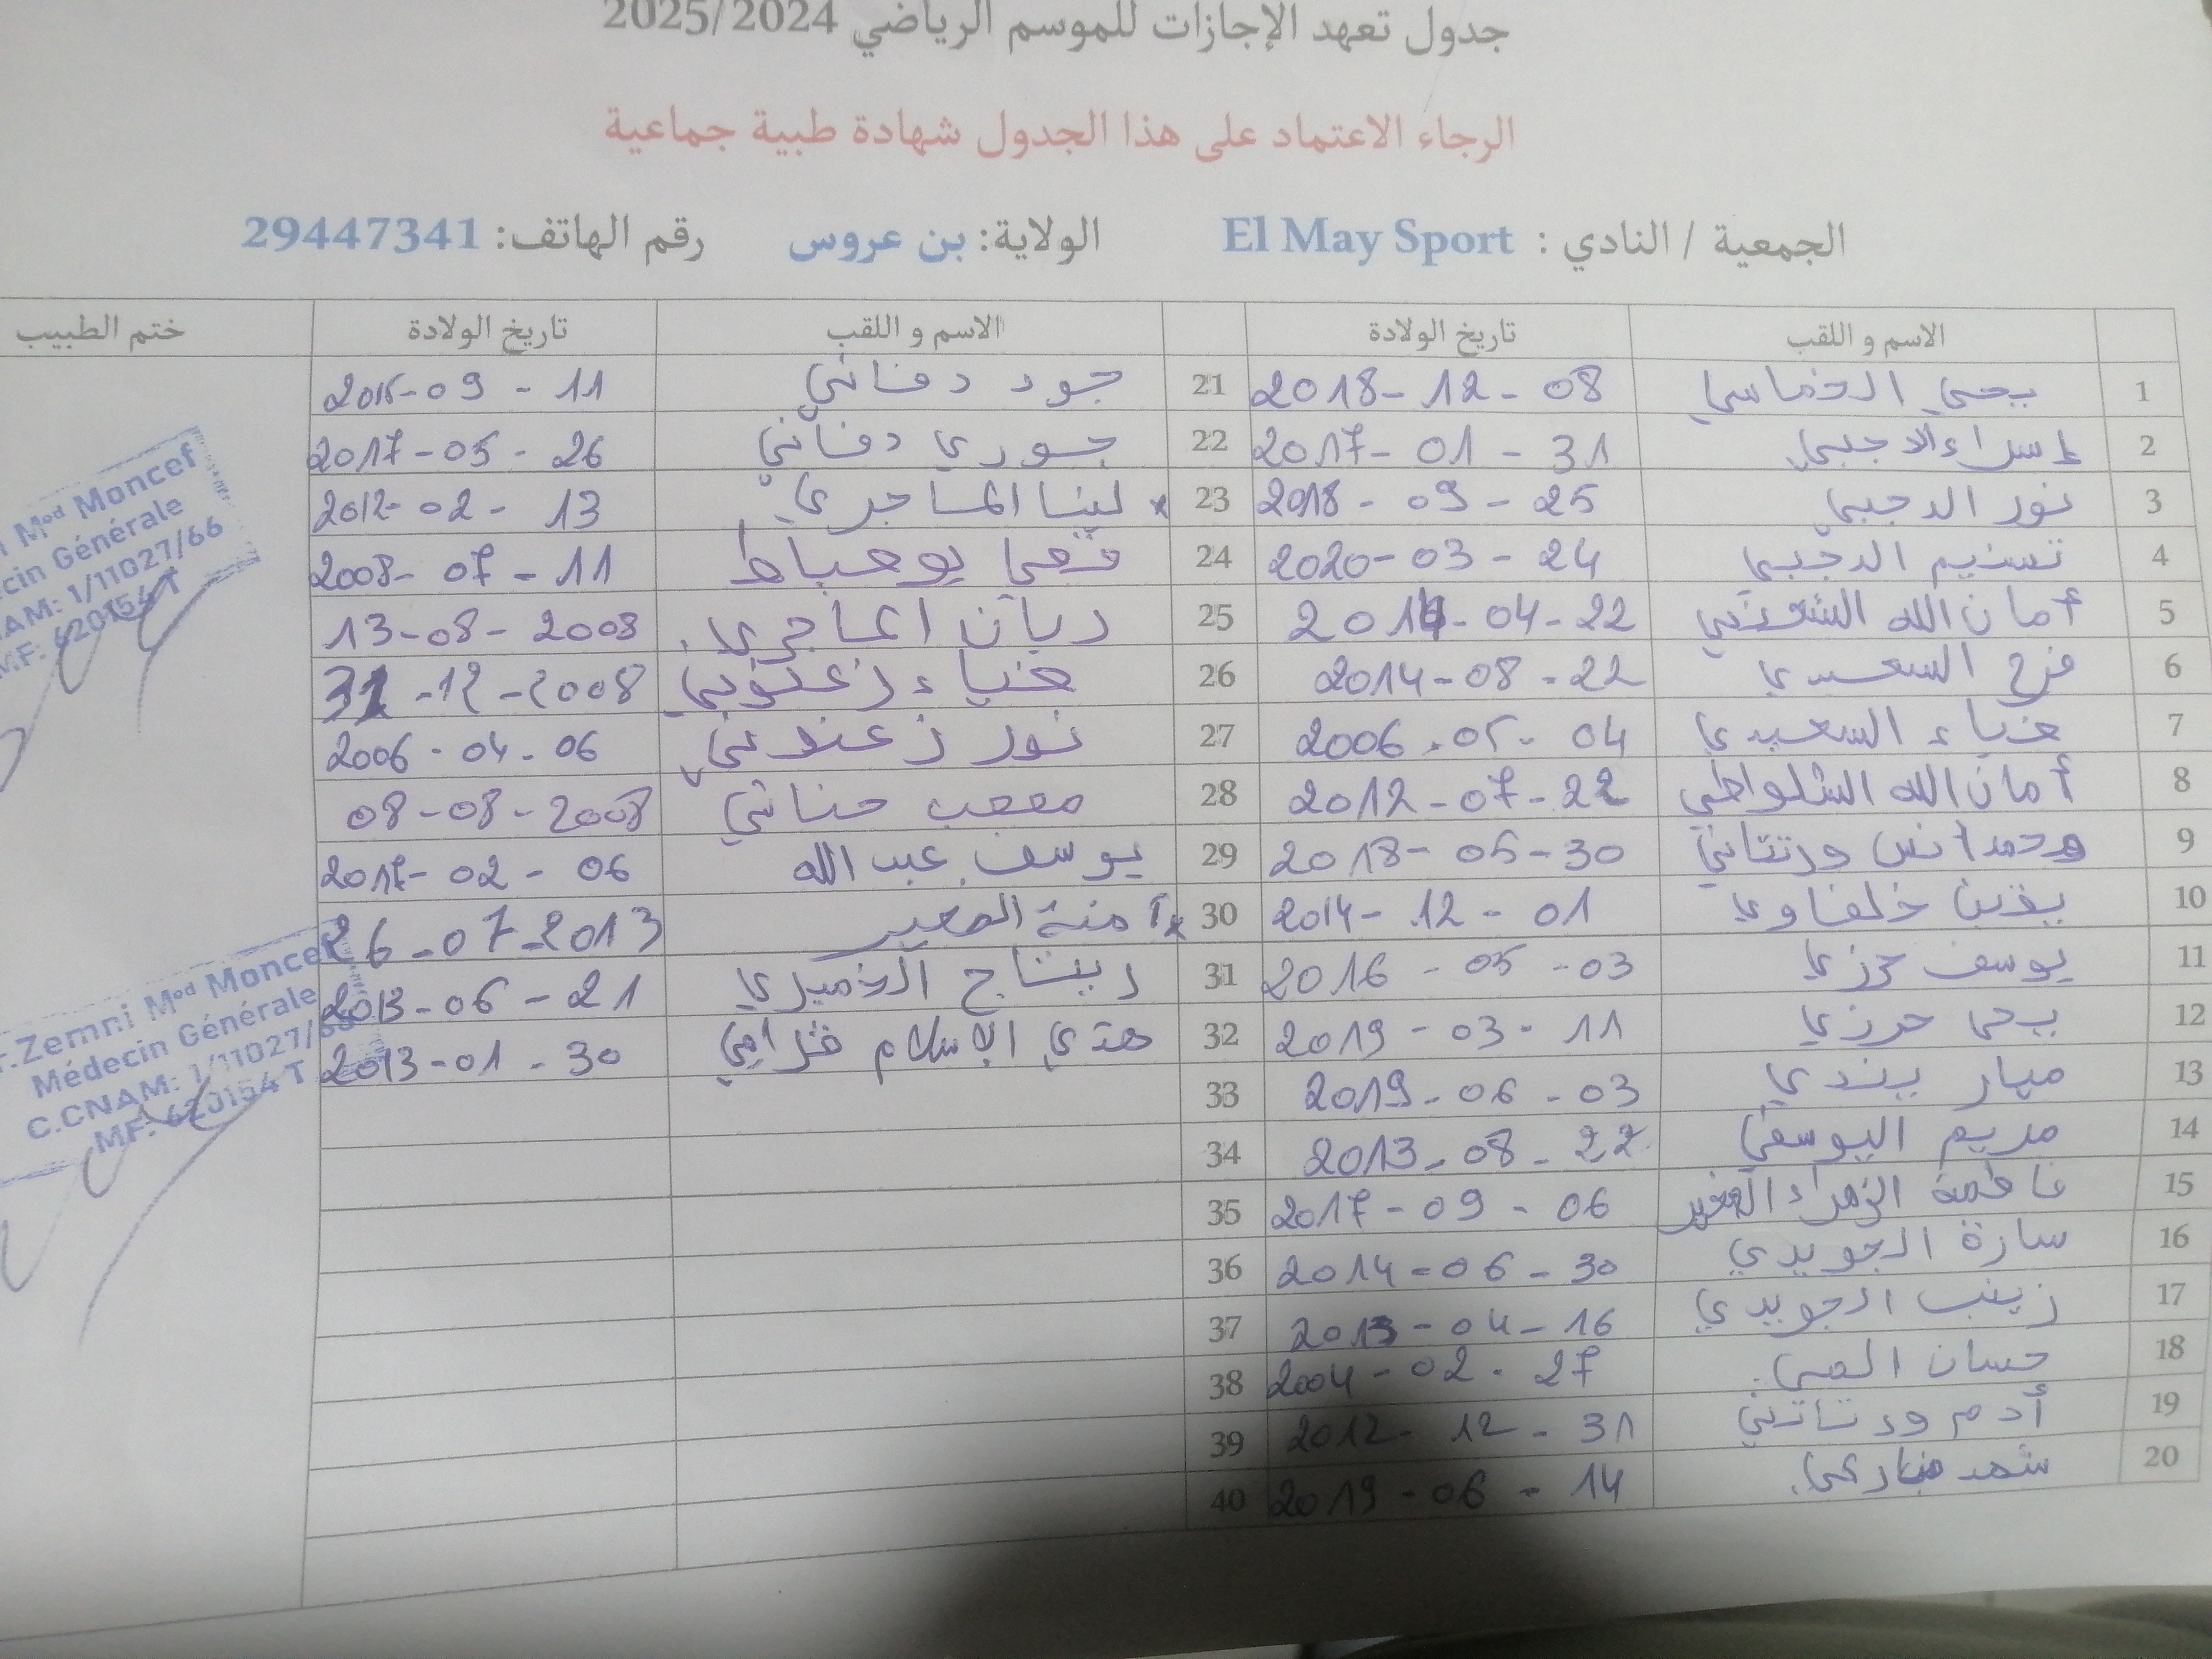 جدول تعهد الإجازات للموسم الرياضي 2025/2024
الرجاء الاعتماد على هذا الجدول شهادة طبية جماعية
الجمعية / النادي : El May Sport الولاية: بن عروس رقم الهاتف: 29447341
الاسم و اللقب تاريخ الولادة الاسم و اللقب تاريخ الولادة ختم الطبيب
1 يحي الخماسي 2018-12-08 21 جود دفاني 11 - 09
2 اسراء الرجبي 2017-01-31 22 جوري دفاني 2017-05-26
3 نور الرجبي 2018-09-25 23 لينا الماجري 2012-02-13
4 تسنيم الرجبي 2020-03-24 24 قصي بوعباط 2008-07-11
5 أمان الله 04-22 25 ريان الماجري 13-08-2008
6 فرح السعيدي 2014-08-22 26 ضياء زعنوني 12-2008
7 ضياء السعيدي 2006-05-04 27 نور زعنوني 2006-04-06
8 أمان الله الشلواطي 2012-07-22 28 مصعب حناني 08-08-2008
9 ورتتاني 2018-05-30 29 يوسف عبد الله 2017-02-06
10 يقين خلفاوي 2014-12-01 30 آمنة الصغير 26-07-2013
11 يوسف حرزي 2016-05-03 31 ريتاج الخميري 2013-06-21
12 يحي حرزي 2019-03-11 32 هدى الإسلام 2013-01-30
13 ميار بندي 2019-06-03 33
14 مريم اليوسفي 2013-08-22 34
15 فاطمة الزهراء الصغير 2017-09-06 35
16 سارة الجويدي 2014-06-30 36
17 زينب الجويدي 2013-04-16 37
18 حسان المي 2004-02-27 38
19 أدم ورتاتني 2012-12-31 39
20 شهد 2019-06-14 40
Mod Moncef
Médecin Générale
CNAM: 1/11027/66
M.F: 620154 T
Zemni Mod Moncef
Médecin Générale
C.CNAM: 1/11027/66
MF: 620154 T